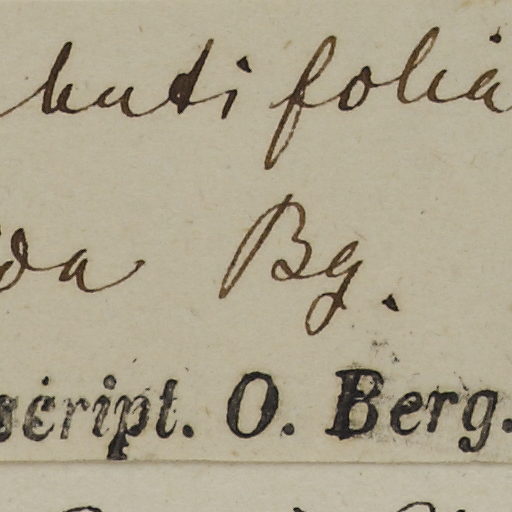 hutifolia
da Bg.
script. O. Berg.